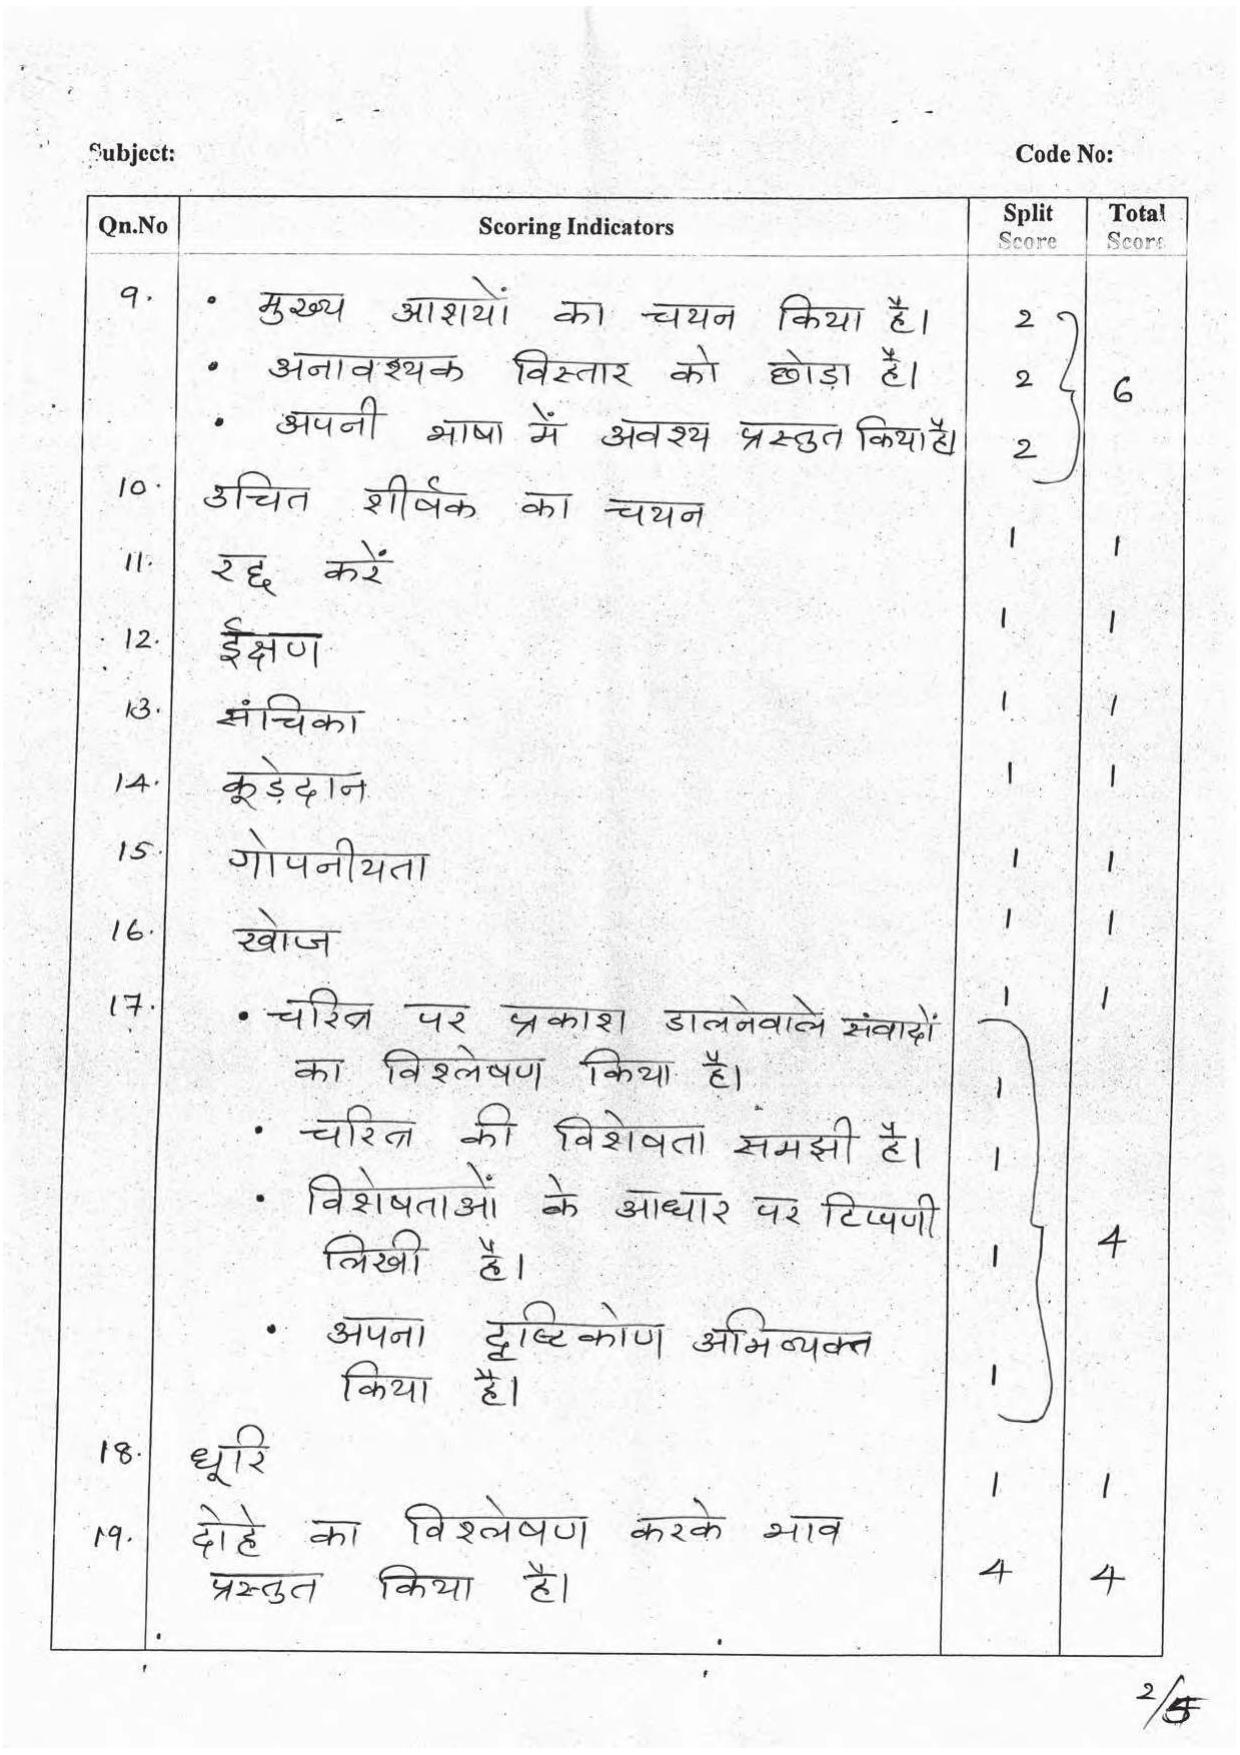 Subject: Code No:
Qn.No Scoring Indicators Split Score Total Score
9. • मुख्य आशयों का चयन किया है। 2
• अनावश्यक विस्तार को छोड़ा है। 2 6
• अपनी भाषा में अवश्य प्रस्तुत किया है। 2
10. उचित शीर्षक का चयन 1 1
11. रद्द करें 1 1
12. ईक्षण 1 1
13. संचिका 1 1
14. कूड़ेदान 1 1
15. गोपनीयता 1 1
16. खोज 1 1
17. • चरित्र पर प्रकाश डालनेवाले संवादों
का विश्लेषण किया है। 1
• चरित्र की विशेषता समझी है। 1
• विशेषताओं के आधार पर टिप्पणी
लिखी है। 1 4
• अपना दृष्टिकोण अभिव्यक्त
किया है। 1
18. धूरि 1 1
19. दोहे का विश्लेषण करके भाव
प्रस्तुत किया है। 4 4
2/5